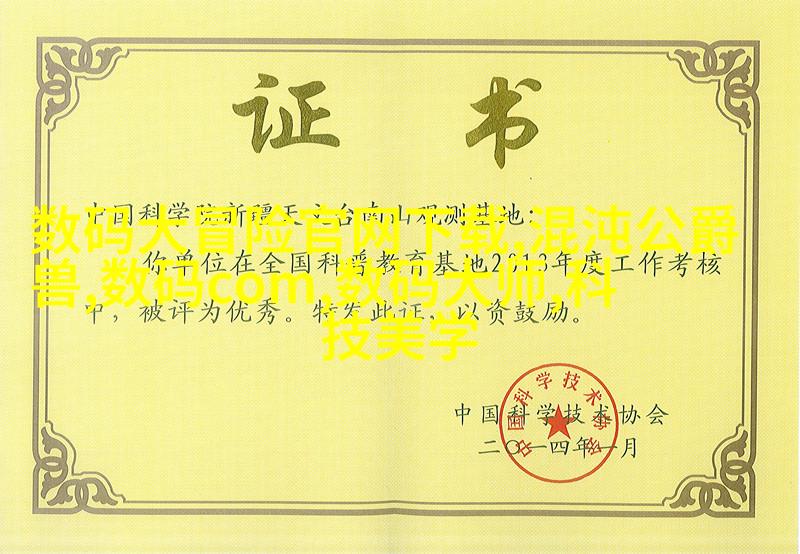 证 书
中国科学院新疆天文台南山观测基地:
数码大冒险官网下载,混沌公爵
你单位在全国科普教育基地2013年度工作考核
兽,数码com,数码大师,科
中，被评为优秀。特发此证，以资鼓励。
技美学
中国科学技术协会
二〇一四年一月
中国科学技术协会